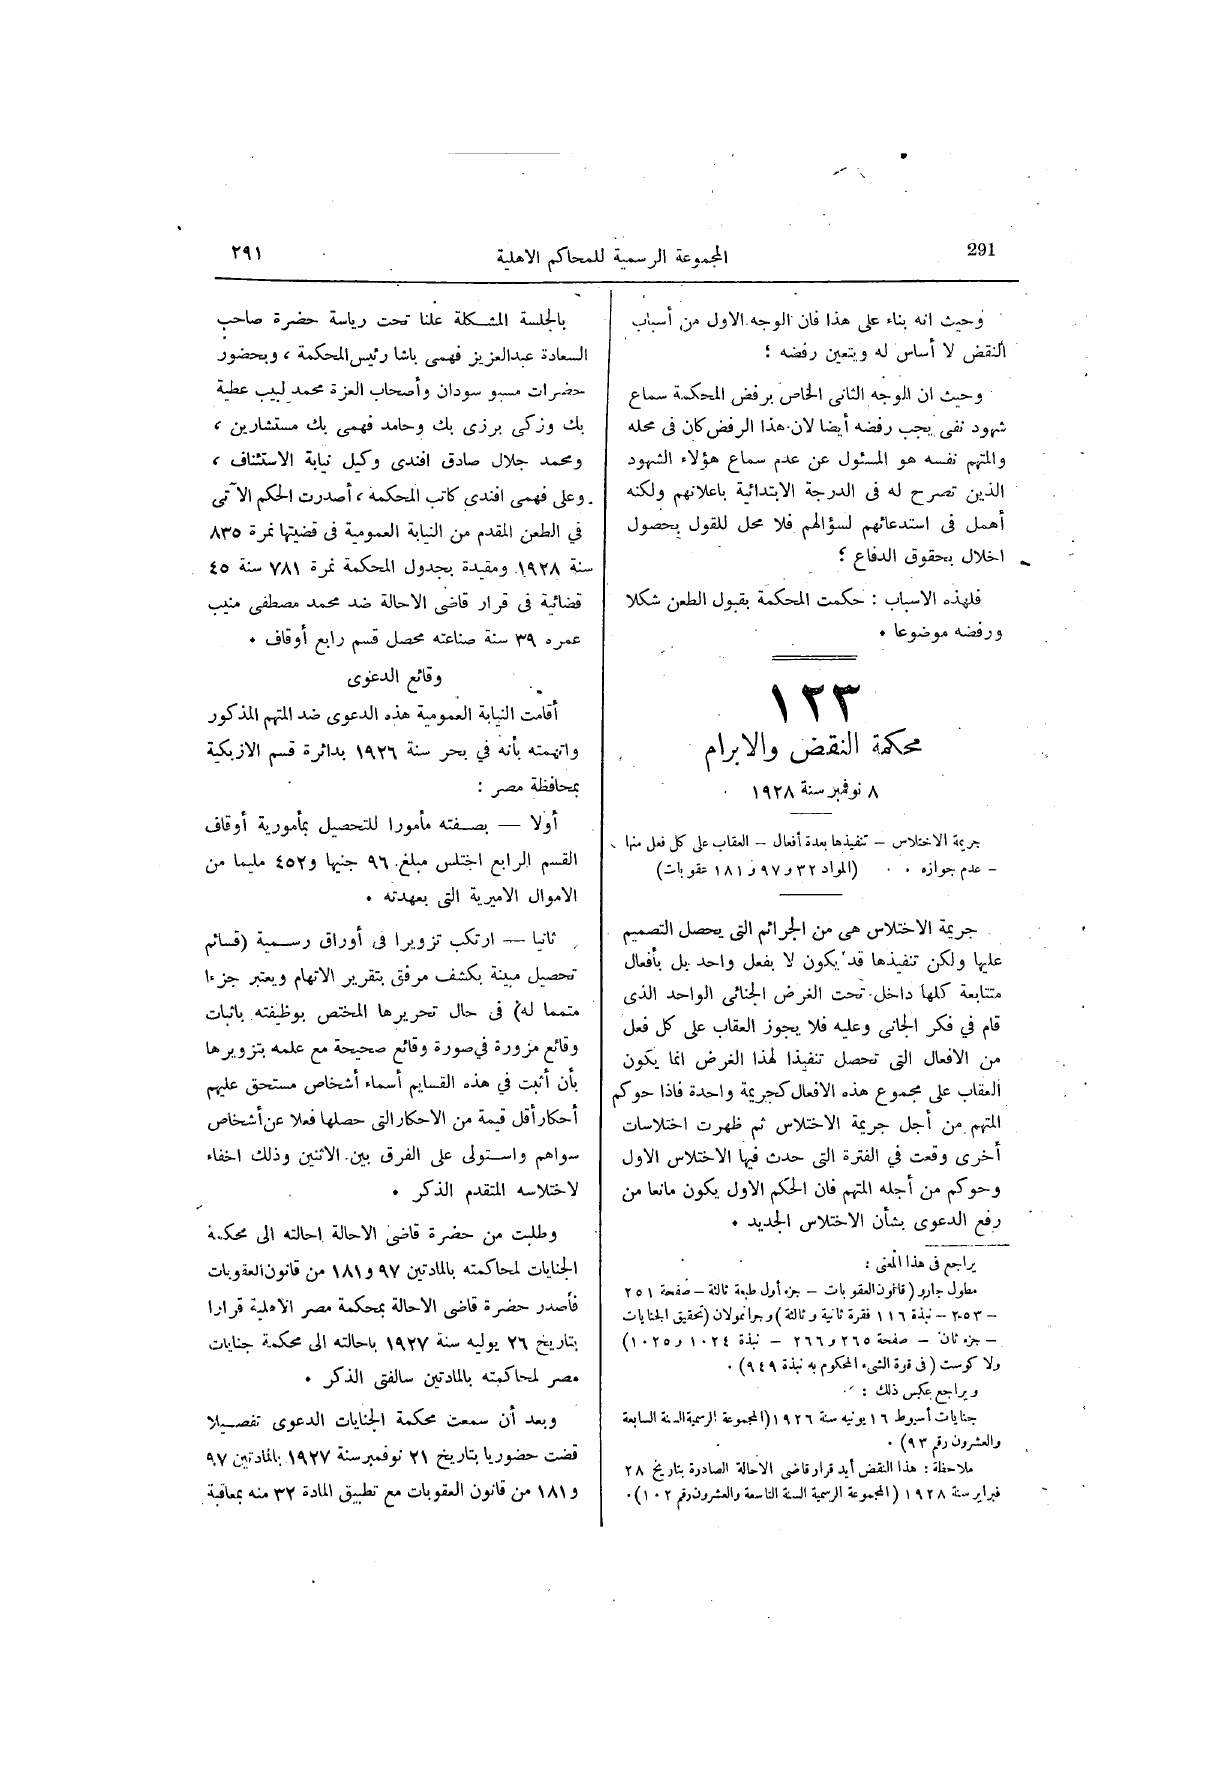 291
المجموعة الرسمية للمحاكم الاهلية
٢٩١
وحيث انه بناء على هذا فان الوجه الاول من أسباب
النقض لا أساس له ويتعين رفضه ؛
وحيث ان الوجه الثانى الخاص برفض المحكمة سماع
شهود نفى يجب رفضه أيضا لان هذا الرفض كان فى محله
والمتهم نفسه هو المسئول عن عدم سماع هؤلاء الشهود
الذين تصرح له فى الدرجة الابتدائية باعلانهم ولكنه
أهمل فى استدعائهم لسؤالهم فلا محل للقول بحصول
اخلال بحقوق الدفاع ؛
فلهذه الاسباب : حكمت المحكمة بقبول الطعن شكلا
ورفضه موضوعا .
١٢٣
محكمة النقض والابرام
٨ نوفمبر سنة ١٩٢٨
جريمة الاختلاس – تنفيذها بعدة أفعال – العقاب على كل فعل منها
– عدم جوازه . (المواد ٣٢ و٩٧ و١٨١ عقوبات)
جريمة الاختلاس هى من الجرائم التى يحصل التصميم
عليها ولكن تنفيذها قد يكون لا بفعل واحد بل بأفعال
متتابعة كلها داخل تحت الغرض الجنائى الواحد الذى
قام في فكر الجانى وعليه فلا يجوز العقاب على كل فعل
من الافعال التى تحصل تنفيذا لهذا الغرض انما يكون
العقاب على مجموع هذه الافعال كجريمة واحدة فاذا حوكم
المتهم من أجل جريمة الاختلاس ثم ظهرت اختلاسات
أخرى وقعت في الفترة التى حدث فيها الاختلاس الاول
وحوكم من أجله المتهم فان الحكم الاول يكون مانعا من
رفع الدعوى بشأن الاختلاس الجديد .
يراجع فى هذا المعنى :
مطول جارو (قانون العقوبات – جزء أول طبعة ثالثة – صفحة ٢٥١
– ٢٥٣ – نبذة ١١٦ فقرة ثانية وثالثة) وجرانمولان (تحقيق الجنايات
– جزء ثان – صفحة ٢٦٥ و٢٦٦ – نبذة ١٠٢٤ و١٠٢٥)
ولا كوست (فى قوة الشىء المحكوم به نبذة ٩٤٩) .
ويراجع عكس ذلك :
جنايات أسيوط ١٦ يونيه سنة ١٩٢٦ (المجموعة الرسمية السنة السابعة
والعشرون رقم ٩٣) .
ملاحظة : هذا النقض أيد قرار قاضى الاحالة الصادرة بتاريخ ٢٨
فبراير سنة ١٩٢٨ (المجموعة الرسمية السنة التاسعة والعشرون رقم ١٠٢) .
بالجلسة المشكلة علنا تحت رياسة حضرة صاحب
السعادة عبدالعزيز فهمى باشا رئيس المحكمة ، وبحضور
حضرات مسيو سودان وأصحاب العزة محمد لبيب عطية
بك وزكى برزى بك وحامد فهمى بك مستشارين ،
ومحمد جلال صادق افندى وكيل نيابة الاستئناف ،
وعلى فهمى افندى كاتب المحكمة ، أصدرت الحكم الآتى
في الطعن المقدم من النيابة العمومية فى قضيتها نمرة ٨٣٥
سنة ١٩٢٨ ومقيدة بجدول المحكمة نمرة ٧٨١ سنة ٤٥
قضائية فى قرار قاضى الاحالة ضد محمد مصطفى منيب
عمره ٣٩ سنة صناعته محصل قسم رابع أوقاف .
وقائع الدعوى
أقامت النيابة العمومية هذه الدعوى ضد المتهم المذكور
واتهمته بأنه في بحر سنة ١٩٢٦ بدائرة قسم الازبكية
بمحافظة مصر :
أولا — بصفته مأمورا للتحصيل بمأمورية أوقاف
القسم الرابع اختلس مبلغ ٩٦ جنيها و٤٥٢ مليما من
الاموال الاميرية التى بعهدته .
ثانيا — ارتكب تزويرا فى أوراق رسمية (قسائم
تحصيل مبينة بكشف مرفق بتقرير الاتهام ويعتبر جزءا
متمما له) فى حال تحريرها المختص بوظيفته باثبات
وقائع مزورة في صورة وقائع صحيحة مع علمه بتزويرها
بأن أثبت في هذه القسايم أسماء أشخاص مستحق عليهم
أحكار أقل قيمة من الاحكار التى حصلها فعلا عن أشخاص
سواهم واستولى على الفرق بين الاثنين وذلك اخفاء
لاختلاسه المتقدم الذكر .
وطلبت من حضرة قاضى الاحالة احالته الى محكمة
الجنايات لمحاكمته بالمادتين ٩٧ و١٨١ من قانون العقوبات
فأصدر حضرة قاضى الاحالة بمحكمة مصر الاهلية قرارا
بتاريخ ٢٦ يوليه سنة ١٩٢٧ باحالته الى محكمة جنايات
مصر لمحاكمته بالمادتين سالفتى الذكر .
وبعد أن سمعت محكمة الجنايات الدعوى تفصيلا
قضت حضوريا بتاريخ ٢١ نوفمبر سنة ١٩٢٧ بالمادتين ٩٧
و١٨١ من قانون العقوبات مع تطبيق المادة ٣٢ منه بمعاقبة